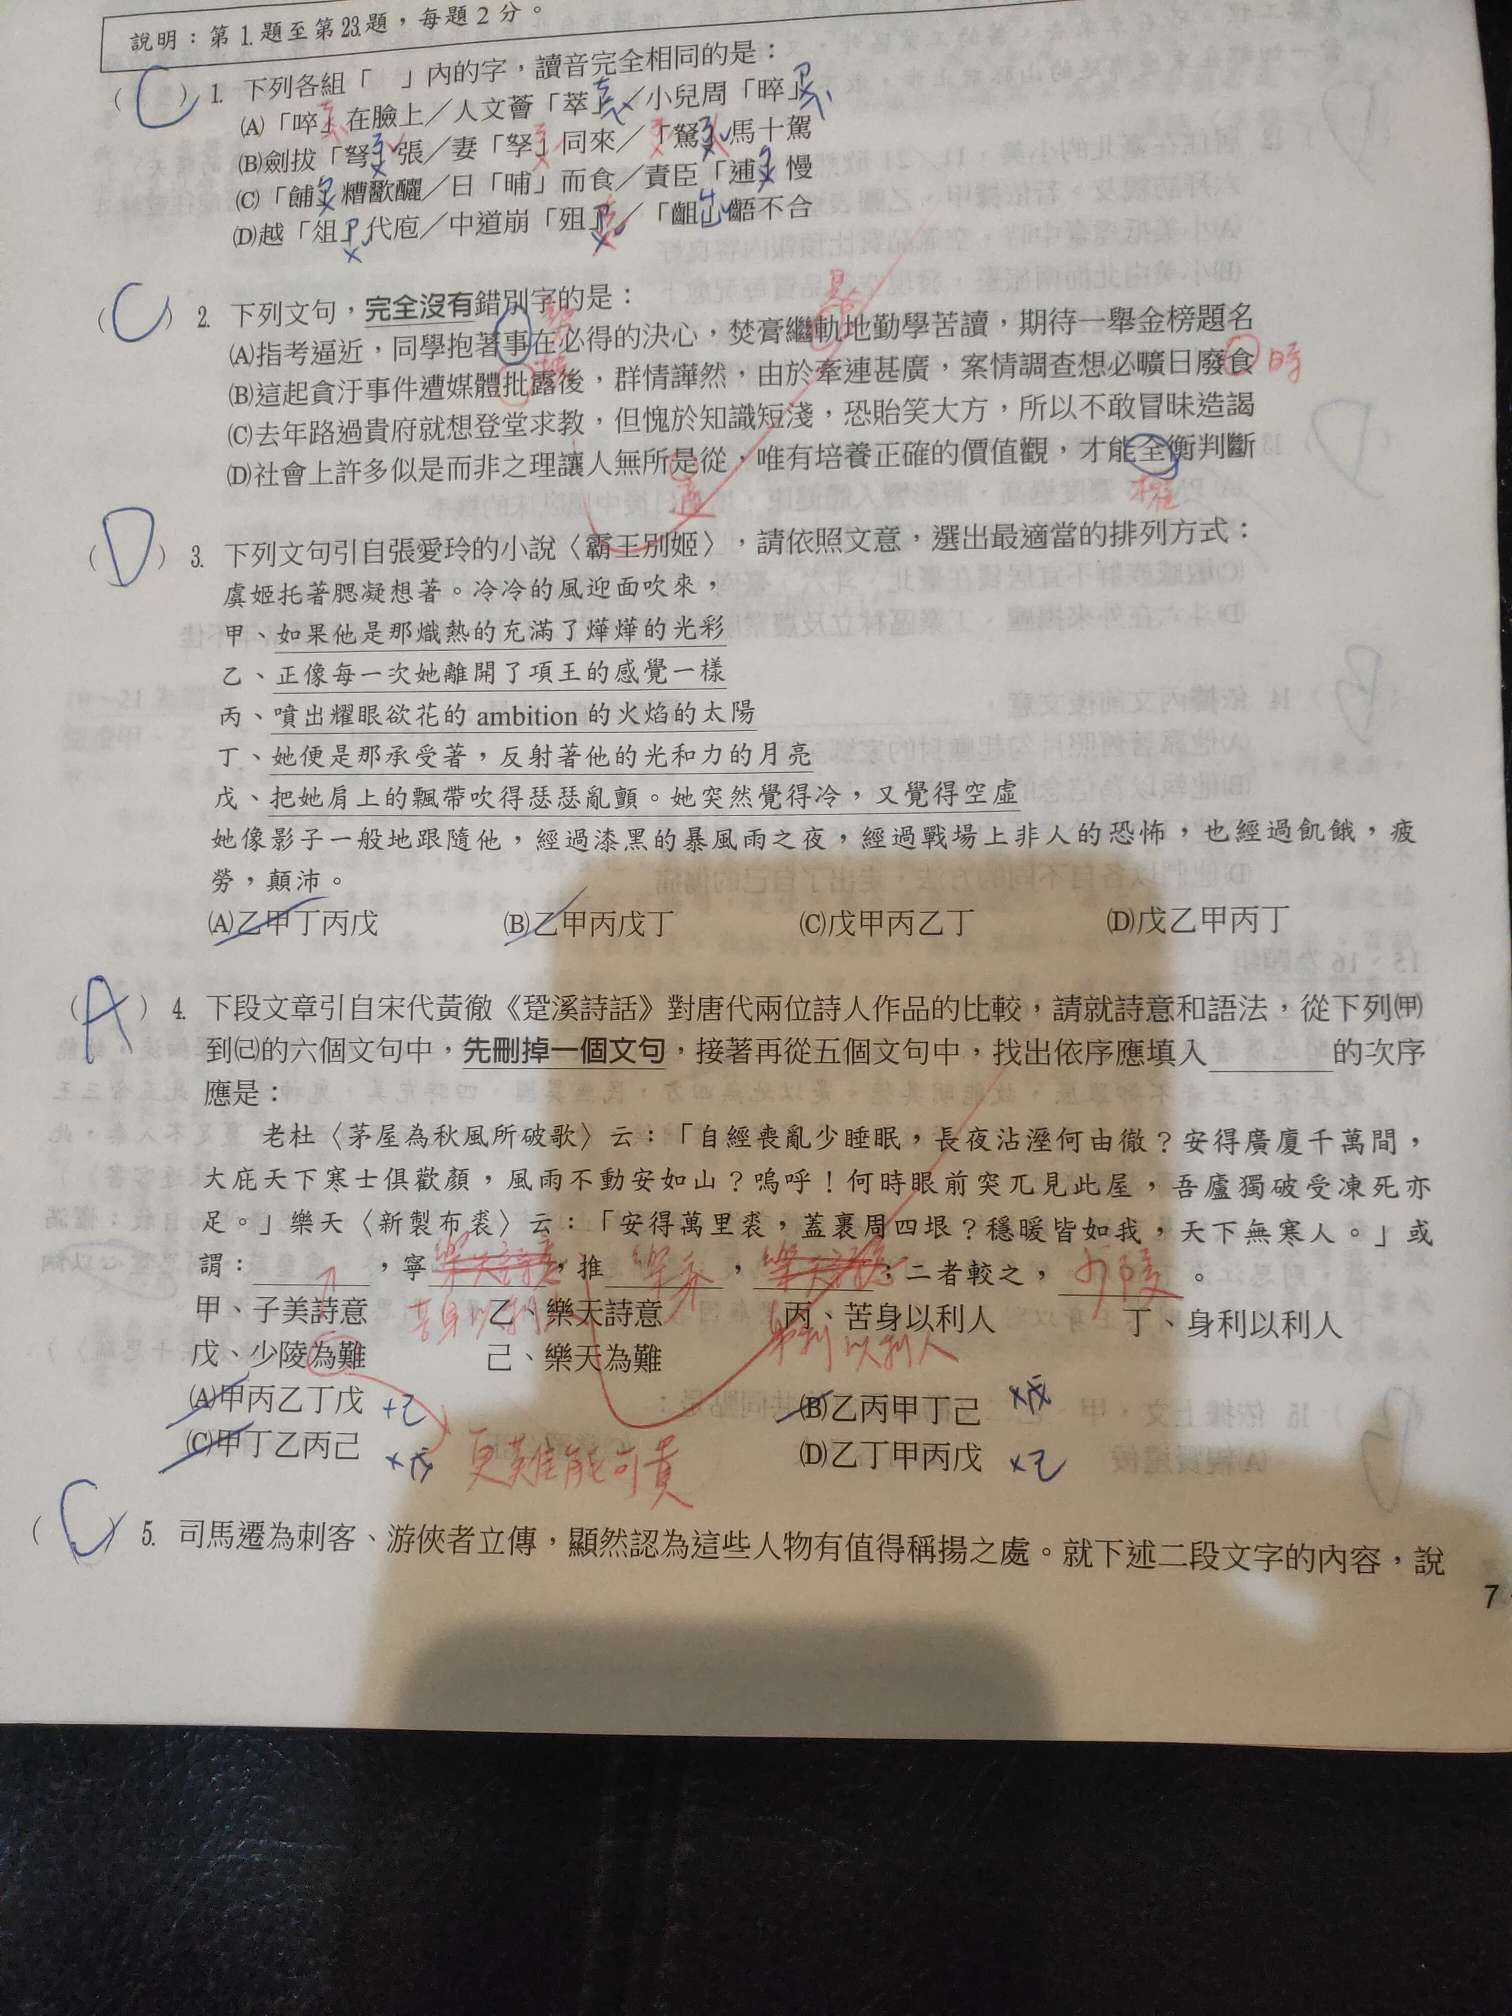 說明：第1.題至第23.題，每題2分。
(C) 1. 下列各組「　」內的字，讀音完全相同的是：
(A)「啐」在臉上／人文薈「萃」／小兒周「晬」
(B)劍拔「弩」張／妻「孥」同來／「駑」馬十駕
(C)「餔」糟歠釃／日「晡」而食／責臣「逋」慢
(D)越「俎」代庖／中道崩「殂」／「齟」齬不合
(C) 2. 下列文句，完全沒有錯別字的是：
(A)指考逼近，同學抱著事在必得的決心，焚膏繼軌地勤學苦讀，期待一舉金榜題名
(B)這起貪汙事件遭媒體批露後，群情譁然，由於牽連甚廣，案情調查想必曠日廢食 時
(C)去年路過貴府就想登堂求教，但愧於知識短淺，恐貽笑大方，所以不敢冒昧造謁
(D)社會上許多似是而非之理讓人無所是從，唯有培養正確的價值觀，才能全衡判斷
適 權
(D) 3. 下列文句引自張愛玲的小說〈霸王別姬〉，請依照文意，選出最適當的排列方式：
虞姬托著腮凝想著。冷冷的風迎面吹來，
甲、如果他是那熾熱的充滿了燁燁的光彩
乙、正像每一次她離開了項王的感覺一樣
丙、噴出耀眼欲花的 ambition 的火焰的太陽
丁、她便是那承受著，反射著他的光和力的月亮
戊、把她肩上的飄帶吹得瑟瑟亂顫。她突然覺得冷，又覺得空虛
她像影子一般地跟隨他，經過漆黑的暴風雨之夜，經過戰場上非人的恐怖，也經過飢餓，疲
勞，顛沛。
(A)乙甲丁丙戊 (B)乙甲丙戊丁 (C)戊甲丙乙丁 (D)戊乙甲丙丁
(A) 4. 下段文章引自宋代黃徹《䂬溪詩話》對唐代兩位詩人作品的比較，請就詩意和語法，從下列(甲)
到(己)的六個文句中，先刪掉一個文句，接著再從五個文句中，找出依序應填入＿＿＿＿的次序
應是：
老杜〈茅屋為秋風所破歌〉云：「自經喪亂少睡眠，長夜沾溼何由徹？安得廣廈千萬間，
大庇天下寒士俱歡顏，風雨不動安如山？嗚呼！何時眼前突兀見此屋，吾廬獨破受凍死亦
足。」樂天〈新製布裘〉云：「安得萬里裘，蓋裹周四垠？穩暖皆如我，天下無寒人。」或
謂：＿＿＿＿，寧樂天詩意，推＿＿＿＿，樂天詩意；二者較之，少陵。
甲、子美詩意 苦身以利人 乙、樂天詩意 丙、苦身以利人 丁、身利以利人
戊、少陵為難 己、樂天為難 身利以利人
(A)甲丙乙丁戊 +己 (B)乙丙甲丁己 ×戊
(C)甲丁乙丙己 ×戊 更難能可貴 (D)乙丁甲丙戊 ×己
(C) 5. 司馬遷為刺客、游俠者立傳，顯然認為這些人物有值得稱揚之處。就下述二段文字的內容，說
7